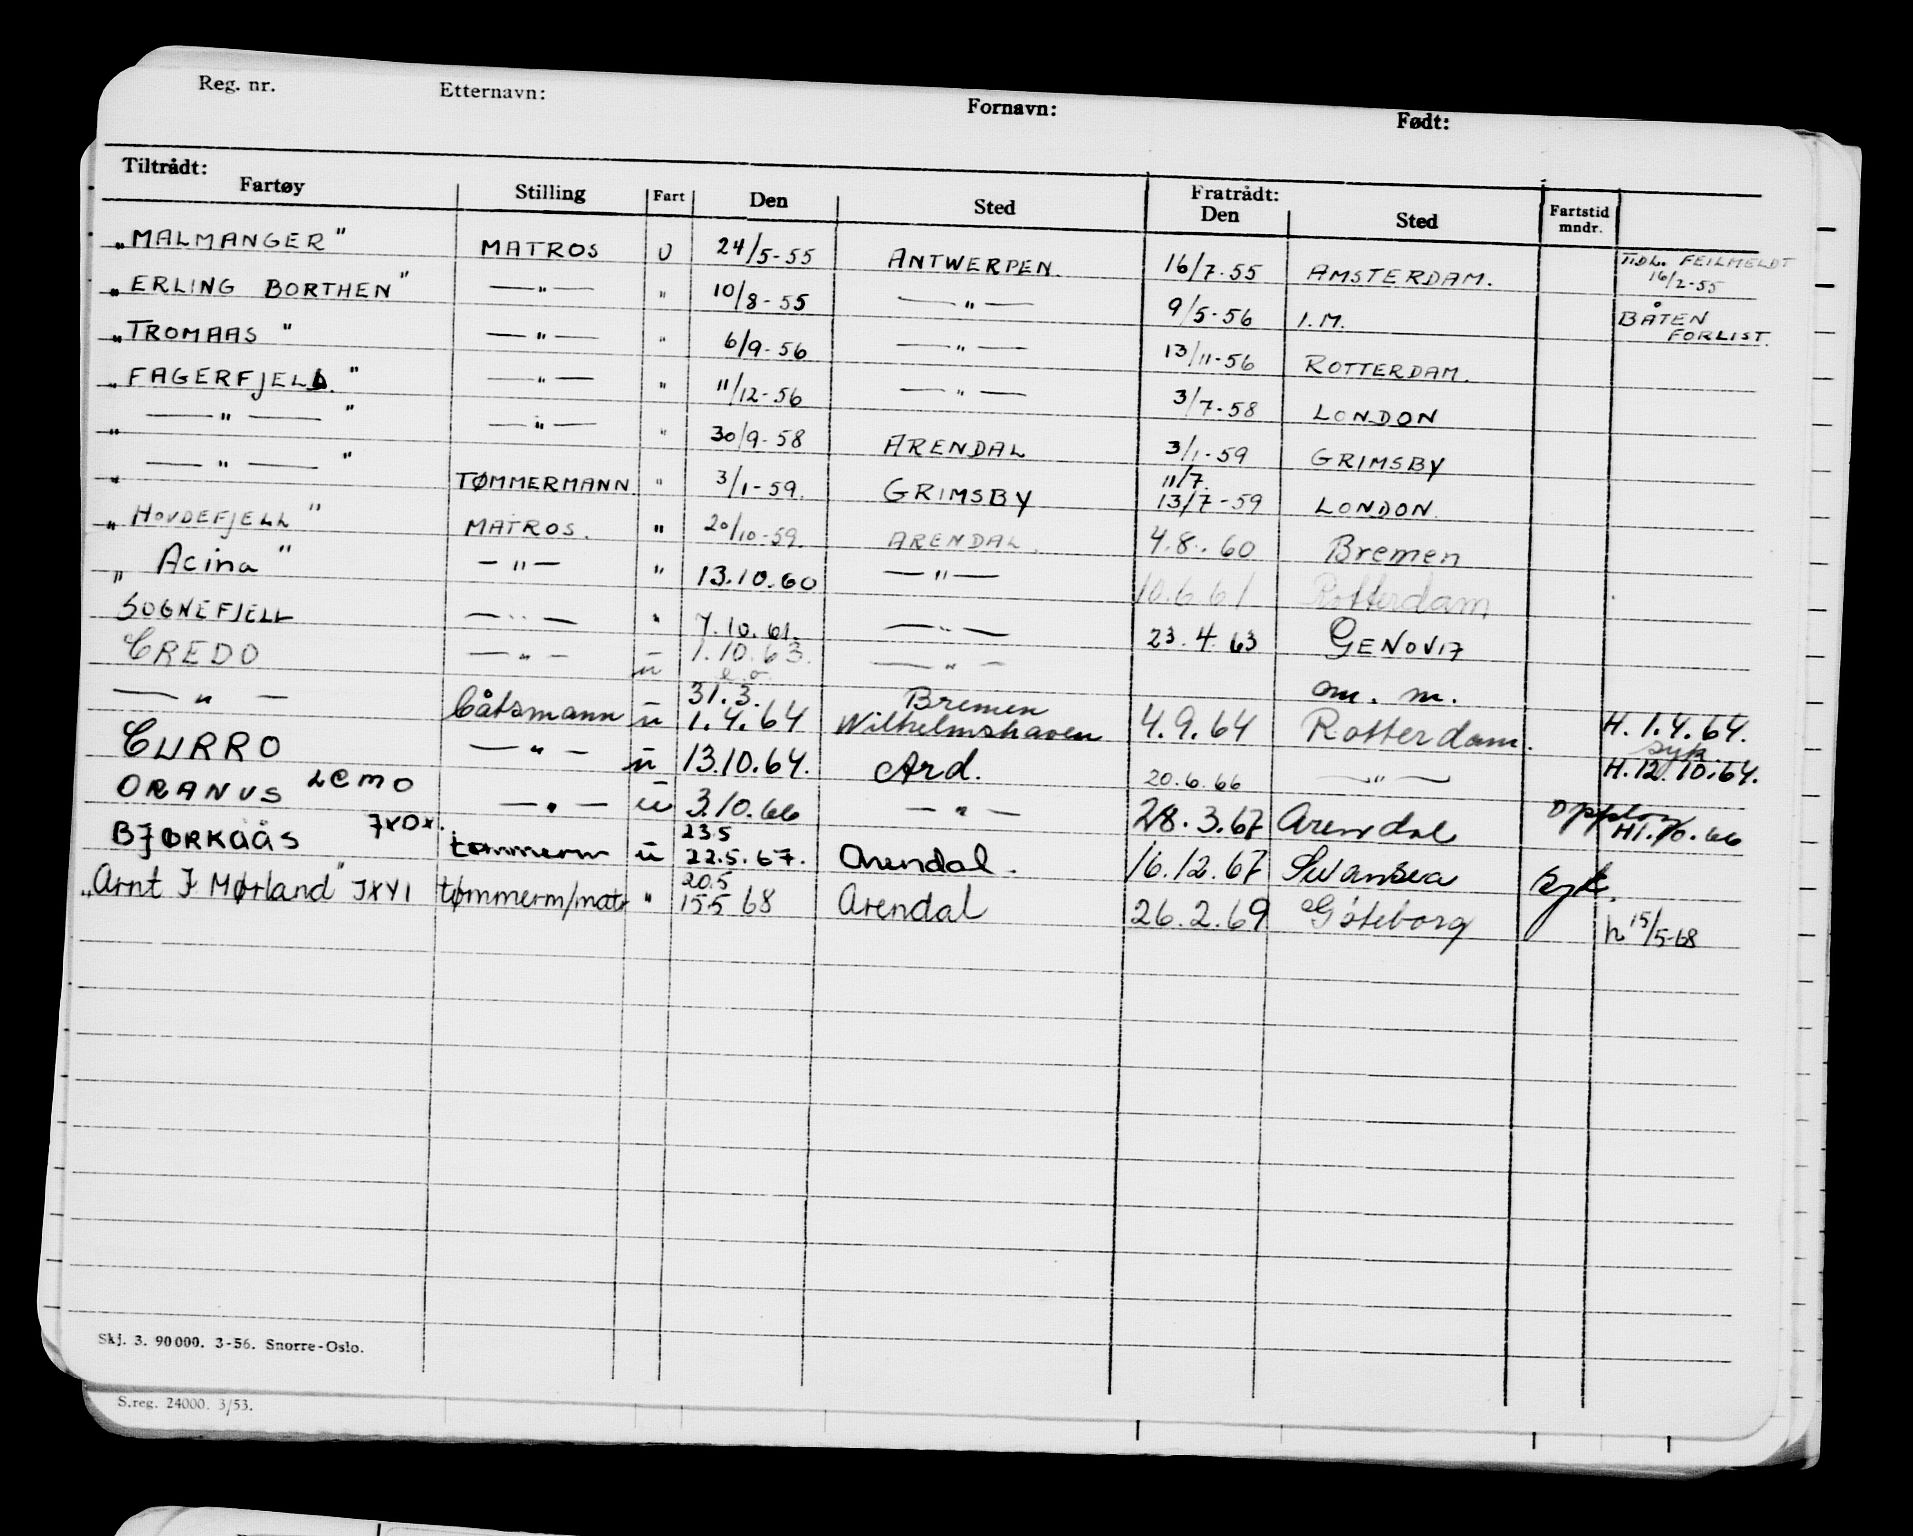 Reg. nr. Etternavn: Fornavn: Født:
Tiltrådt: Fratrådt:
Fartøy Stilling Fart Den Sted Den Sted Fartstid mndr.
„MALMANGER" MATROS U 24/5-55 ANTWERPEN. 16/7-55 AMSTERDAM. TIDL. FEILMELDT 16/2-55
„ERLING BORTHEN" —"— " 10/8-55 —"— 9/5-56 I.M. BÅTEN FORLIST.
„TROMAAS" —"— " 6/9-56 —"— 13/11-56 ROTTERDAM.
„FAGERFJELD." —"— " 11/12-56 —"— 3/7-58 LONDON
„—"—" —"— " 30/9-58 ARENDAL 3/1-59 GRIMSBY
„—"—" TØMMERMANN " 3/1-59. GRIMSBY 11/7. 13/7-59 LONDON.
„HOVDEFJELL" MATROS. " 20/10-59. ARENDAL. 4.8.60 Bremen
„Acina" —"— " 13.10.60 —"— 10.6.61 Rotterdam
SOGNEFJELL —"— " 7.10.61. —"— 23.4.63 GENOVA
CREDO —"— u 1.10.63. —"— om. m.
—"— båtsmann u 31.3. 1.4.64 Bremen Wilhelmshaven 4.9.64 Rotterdam. H. 1.4.64. syk
CURRO —"— u 13.10.64. Ard. 20.6.66 —"— H. 12.10.64.
ORANUS LEMO —"— u 3.10.66 —"— 28.3.67 Arendal opplag H1.10.66
BJØRKAÅS JXOX. tømmerm u 23.5 22.5.67. Arendal. 16.12.67 Swansea syk.
„Arnt J Mørland" JXYI tømmerm/matr " 20.5 15.5 68 Arendal 26.2.69 Göteborg h 15/5-68
Skj. 3. 90000. 3-56. Snorre-Oslo.
S.reg. 24000. 3/53.